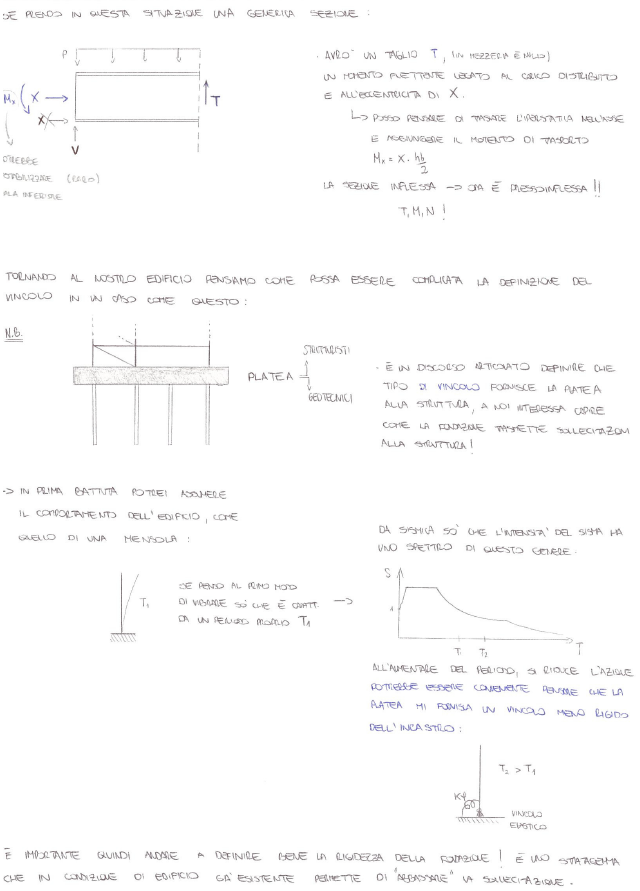 SE PRENDO IN QUESTA SITUAZIONE UNA GENERICA SEZIONE :
P
Mx
X
X
T
V
POTREBBE
STABILIZZARE (RARO)
ALA INFERIORE
- AVRO' UN TAGLIO T, (IN MEZZERIA È NULLO)
UN MOMENTO FLETTENTE LEGATO AL CARICO DISTRIBUITO
E ALL'ECCENTRICITÀ DI X.
↳ POSSO PENSARE DI PASSARE L'IPERSTATICA NELL'ASSE
E AGGIUNGERE IL MOMENTO DI TRASPORTO
Mx = X · hb/2
LA SEZIONE INFLESSA → ORA È PRESSOINFLESSA !!
T, M, N !
TORNANDO AL NOSTRO EDIFICIO PENSIAMO COME POSSA ESSERE COMPLICATA LA DEFINIZIONE DEL
VINCOLO IN UN CASO COME QUESTO :
N.B.
PLATEA
STRUTTURISTI
GEOTECNICI
- È UN DISCORSO ARTICOLATO DEFINIRE CHE
TIPO DI VINCOLO FORNISCE LA PLATEA
ALLA STRUTTURA, A NOI INTERESSA CAPIRE
COME LA FONDAZIONE TRASMETTE SOLLECITAZIONI
ALLA STRUTTURA !
-> IN PRIMA BATTUTA POTREI ASSUMERE
IL COMPORTAMENTO DELL'EDIFICIO, COME
QUELLO DI UNA MENSOLA :
T1
SE PENSO AL PRIMO MODO
DI VIBRARE SO' CHE È CARATT.
DA UN PERIODO PROPRIO T1
→
DA SISMICA SO' CHE L'INTENSITA' DEL SISMA HA
UNO SPETTRO DI QUESTO GENERE.
S
1
T1
T2
T
ALL'AUMENTARE DEL PERIODO, SI RIDUCE L'AZIONE
POTREBBE ESSERE CONVENIENTE PENSARE CHE LA
PLATEA MI FORNISCA UN VINCOLO MENO RIGIDO
DELL'INCASTRO :
T2 > T1
Kφ
VINCOLO
ELASTICO
È IMPORTANTE QUINDI ANDARE A DEFINIRE BENE LA RIGIDEZZA DELLA FONDAZIONE ! È UNO STRATAGEMMA
CHE IN CONDIZIONE DI EDIFICIO GIA' ESISTENTE PERMETTE DI "ABBASSARE" LA SOLLECITAZIONE.